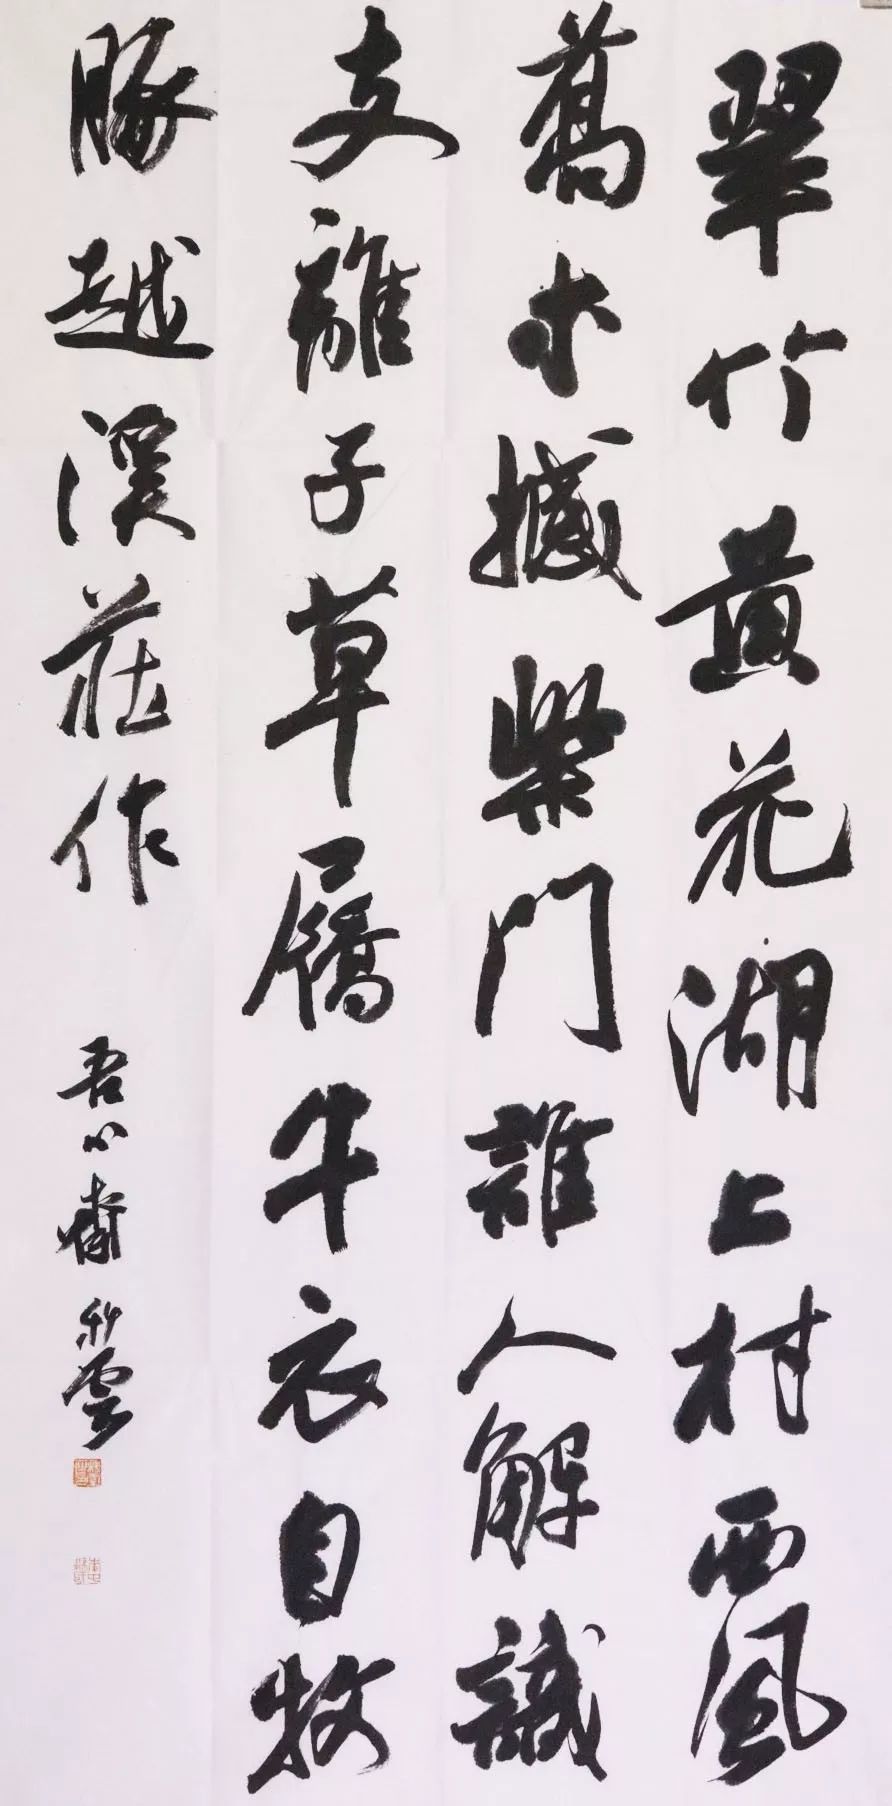 翠竹黄花湖上村西風
喬木撼柴門誰人解識
支離子草屩牛衣自牧
豚越溪莊作
吾心齋 雲